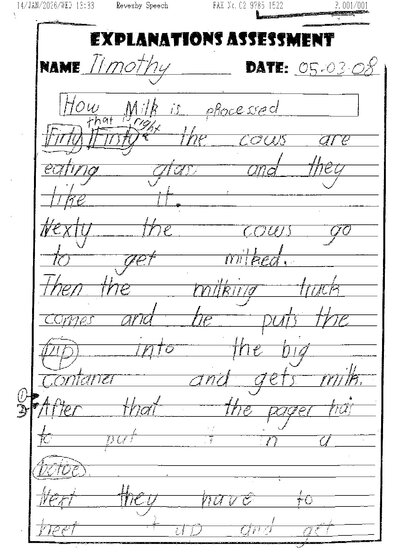 14/JAN/2026/WED 13:33 Revesby Speech FAX No. 02 9785 1522 P.001/001
EXPLANATIONS ASSESSMENT
NAME Timothy DATE: 05-03-08
How Milk is processed
that is right
Firly Firsty the cows are
eating glass and they
like it.
Nexly the cows go
to get milked.
Then the milking truck
comes and he puts the
into the big
contaner and gets milk.
After that the pager has
to put it in a
Next they have to
heet it up and get